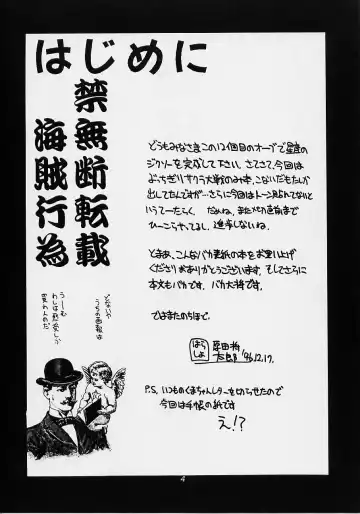 はじめに
禁無断転載
海賊行為
どうもみなさまこの12個目のオーブで星座の
ジグソーを完成して下さい。さてさて、今回は
ぶっちぎりサクラ大戦のみ本、こないだもたしか
出してたんですが…さらに今回はトーンも
いうてーたらく だめね、またやで直前まで
ひーこらやってるし、進歩しないね。
とまあ、こんなバカ表紙の本をお買い上げ
くださりありがとうございます、そしてさらに
本文もバカです。バカ大将です。
ではまたのちほど。
はらしょ
原田将太郎 '96.12.17.
P.S. いつものくまちゃんレターをきらせたので
今回は手帳の紙です
え!?
どないや
うちの画報は
うーむ
わしは熱愛しか
買わんのだ
4